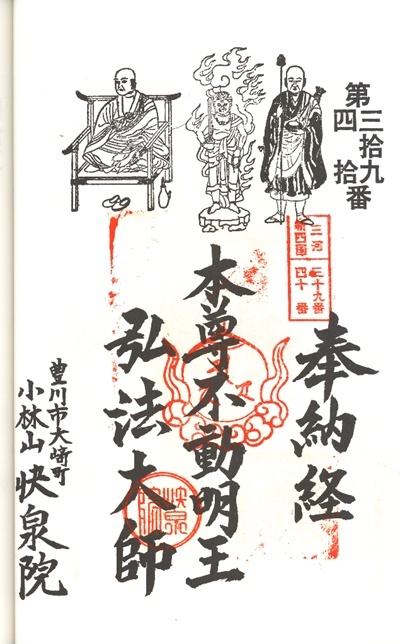 第三拾九
四拾番
三河 三十九番
新四国 四十番
奉納経
本尊不動明王
弘法大師
快泉院
豊川市大崎町
小林山快泉院